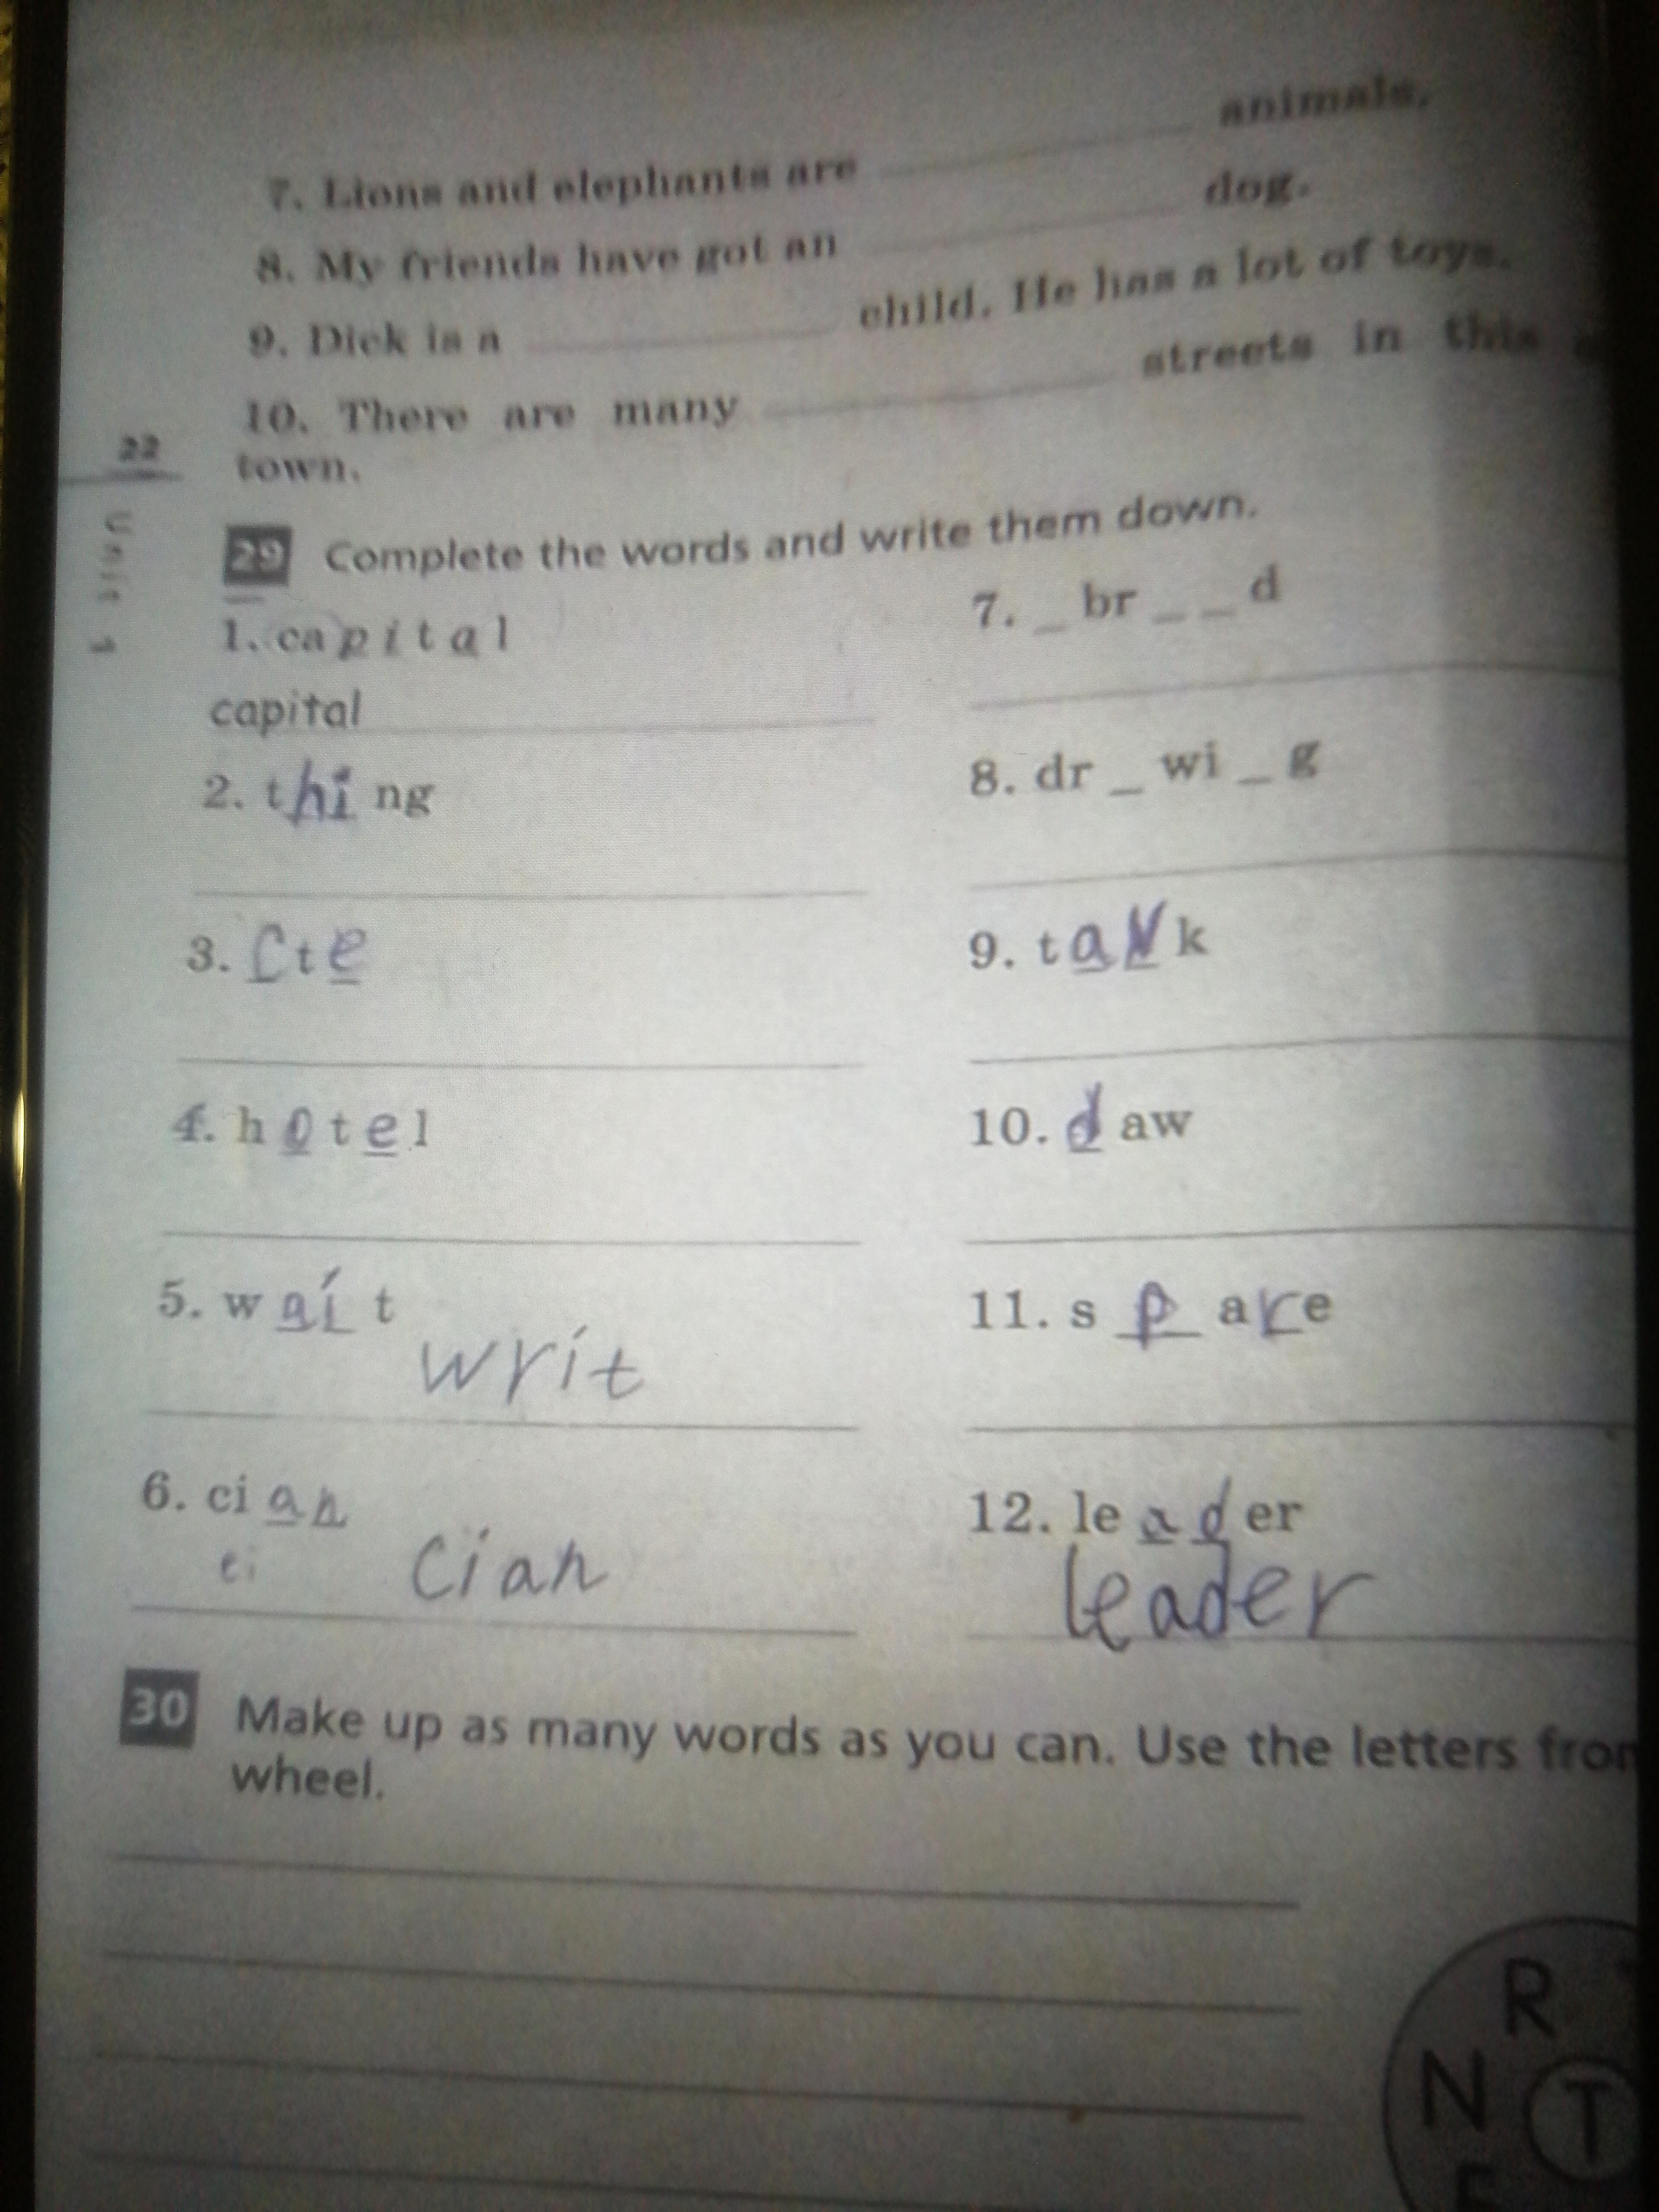 7. Lions and elephants are ________ animals.
8. My friends have got an ________ dog.
9. Dick is a ________ child. He has a lot of toys.
10. There are many ________ streets in this
town.
22
Unit 1
29 Complete the words and write them down.
1. capital
capital
2. thi ng
3. Cte
4. hotel
5. wait
writ
6. cian
ci cian
7. _ br _ _ d
8. dr _ wi _ g
9. tank
10. d aw
11. s p are
12. leader
leader
30 Make up as many words as you can. Use the letters from
wheel.
R
N T